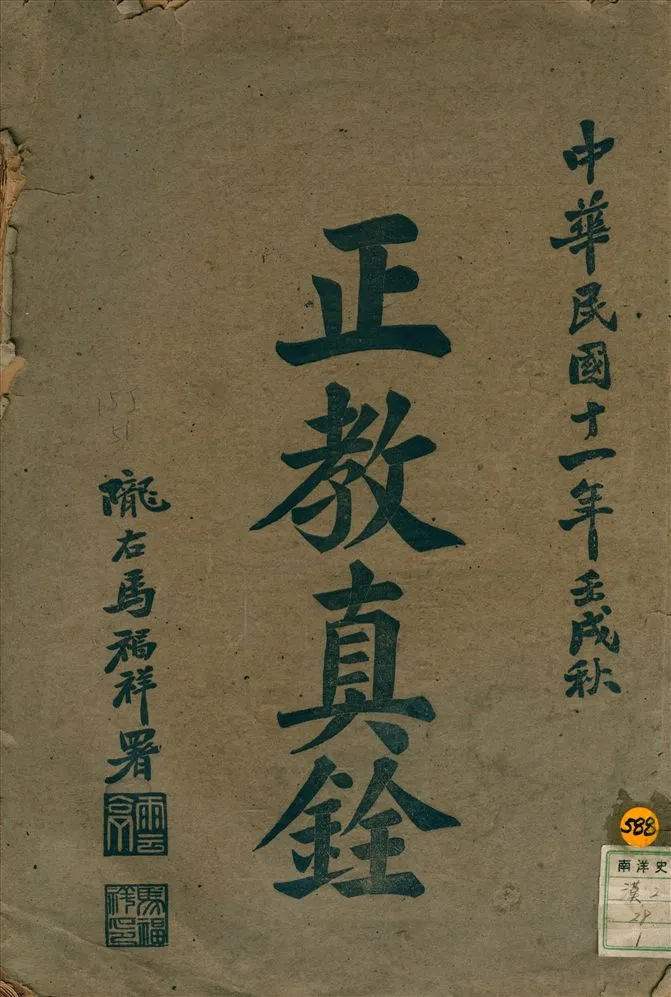 中華民國十一年壬戌秋
正教真銓
隴右馬福祥署
雲亭
馬福祥印
588
南洋史
漢
28
1
155
51